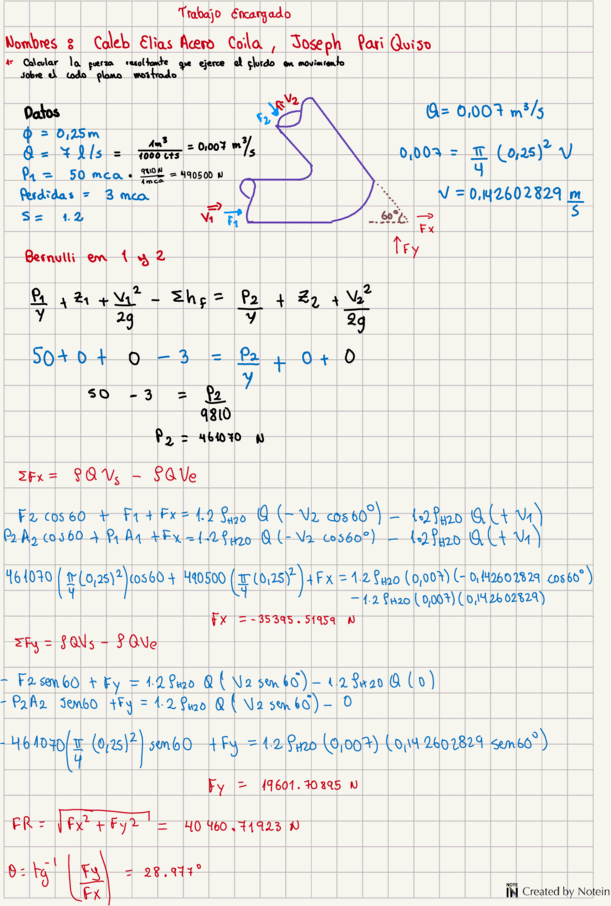 Trabajo Encargado
Nombres : Caleb Elias Acero Coila , Joseph Pari Quiso
* Calcular la fuerza resultante que ejerce el fluido en movimiento
sobre el codo plano mostrado
Datos
φ = 0,25m
Q = 7 l/s = 1m³/1000 LTS = 0,007 m³/s
P1 = 50 mca · 9810N/1mca = 490500 N
Perdidas = 3 mca
S = 1.2
F2 V2
V1 F1
60°
Fx
Fy
Q = 0,007 m³/s
0,007 = π/4 (0,25)² V
V = 0,142602829 m/s
Bernulli em 1 y 2
P1/γ + Z1 + V1²/2g - Σhf = P2/γ + Z2 + V2²/2g
50 + 0 + 0 - 3 = P2/γ + 0 + 0
50 - 3 = P2/9810
P2 = 461070 N
ΣFx = ρQVs - ρQVe
F2 cos60 + F1 + Fx = 1.2 ρH2O Q (-V2 cos60°) - 1.2 ρH2O Q (+V1)
P2A2 cos60 + P1A1 + Fx = 1.2 ρH2O Q (-V2 cos60°) - 1.2 ρH2O Q (+V1)
461070 (π/4 (0,25)²) cos60 + 490500 (π/4 (0,25)²) + Fx = 1.2 ρH2O (0,007) (-0,142602829 cos60°)
-1.2 ρH2O (0,007) (0,142602829)
Fx = -35395.51959 N
ΣFy = ρQVs - ρQVe
- F2 sen60 + Fy = 1.2 ρH2O Q (V2 sen60°) - 1.2 ρH2O Q (0)
- P2A2 sen60 + Fy = 1.2 ρH2O Q (V2 sen60°) - 0
- 461070 (π/4 (0,25)²) sen60 + Fy = 1.2 ρH2O (0,007) (0,142602829 sen60°)
Fy = 19601.70895 N
FR = √Fx² + Fy² = 40460.71923 N
θ = tg⁻¹ (Fy/Fx) = 28.977°
NOTE IN Created by Notein